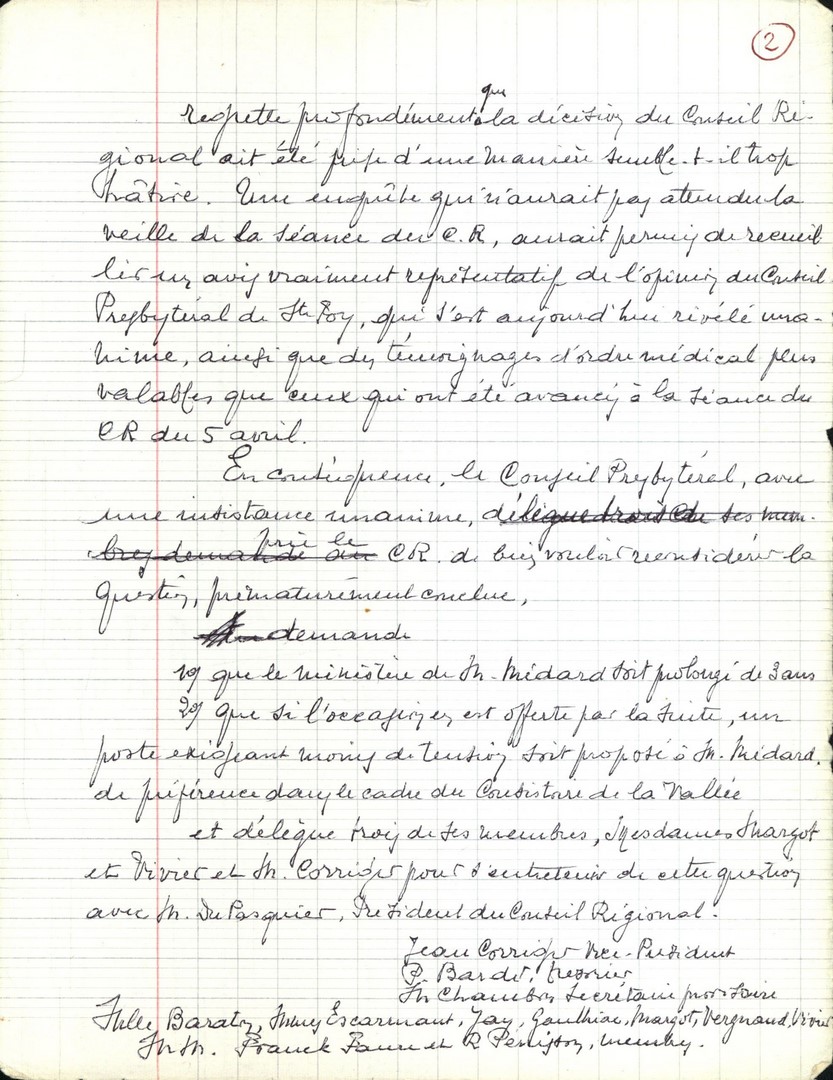 2
regrette profondément que la décision du Conseil Ré-
gional ait été prise d'une manière semble-t-il trop
hâtive. Une enquête qui n'aurait pas attendu la
veille de la séance du C.R, aurait permis de recueil
lir un avis vraiment représentatif de l'opinion du Conseil
Presbytéral de Ste Foy, qui s'est aujourd'hui révélé una-
nime, ainsi que des témoignages d'ordre médical plus
valables que ceux qui ont été avancés à la séance du
CR du 5 avril.
En conséquence, le Conseil Presbytéral, avec
une insistance unanime, délègue trois de ses mem-
bres demande au prie le CR. de bien vouloir reconsidérer la
question, prématurément conclue,
demande
1°) que le ministère de M. Médard soit prolongé de 3 ans
2°) que si l'occasion en est offerte par la suite, un
poste exigeant moins de tension soit proposé à M. Médard,
de préférence dans le cadre du Consistoire de la Vallée
et délègue trois de ses membres, Mesdames Margot
et Vivier et M. Corriger pour s'entretenir de cette question
avec M. Du Pasquier, Président du Conseil Régional.
Jean Corriger Vice-Président
P. Bardet, trésorier
M Chambon Secrétaire provisoire
Melle Baraton, Mmes Escarmant, Jay, Gauthier, Margot, Vergnaud, Vivier
MM. Franck Faure et R Penisson, membres.